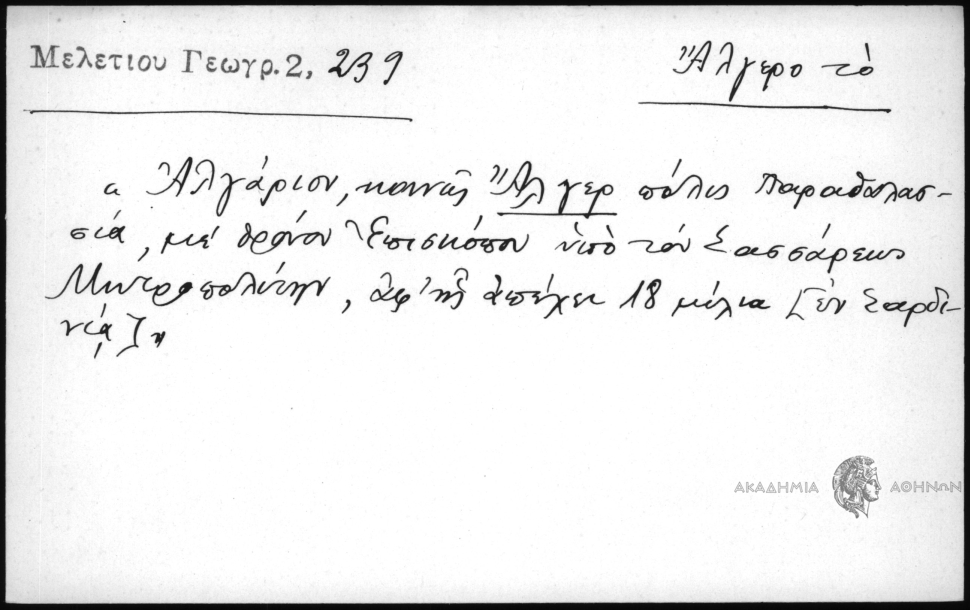 Μελετιου Γεωγρ. 2, 239
Ἄλγερο τὸ
" Ἀλγάριον, κοινῶς Ἄλγερ πόλις Παραθαλασ-
σιά, μὲ θρόνον Ἐπισκόπου ὑπὸ τὸν Σασσάρεως
Μητροπολίτην, ἀφ' ἧς ἀπέχει 18 μίλια [ἐν Σαρδι-
νίᾳ] "
ΑΚΑΔΗΜΙΑ ΑΘΗΝΩΝ